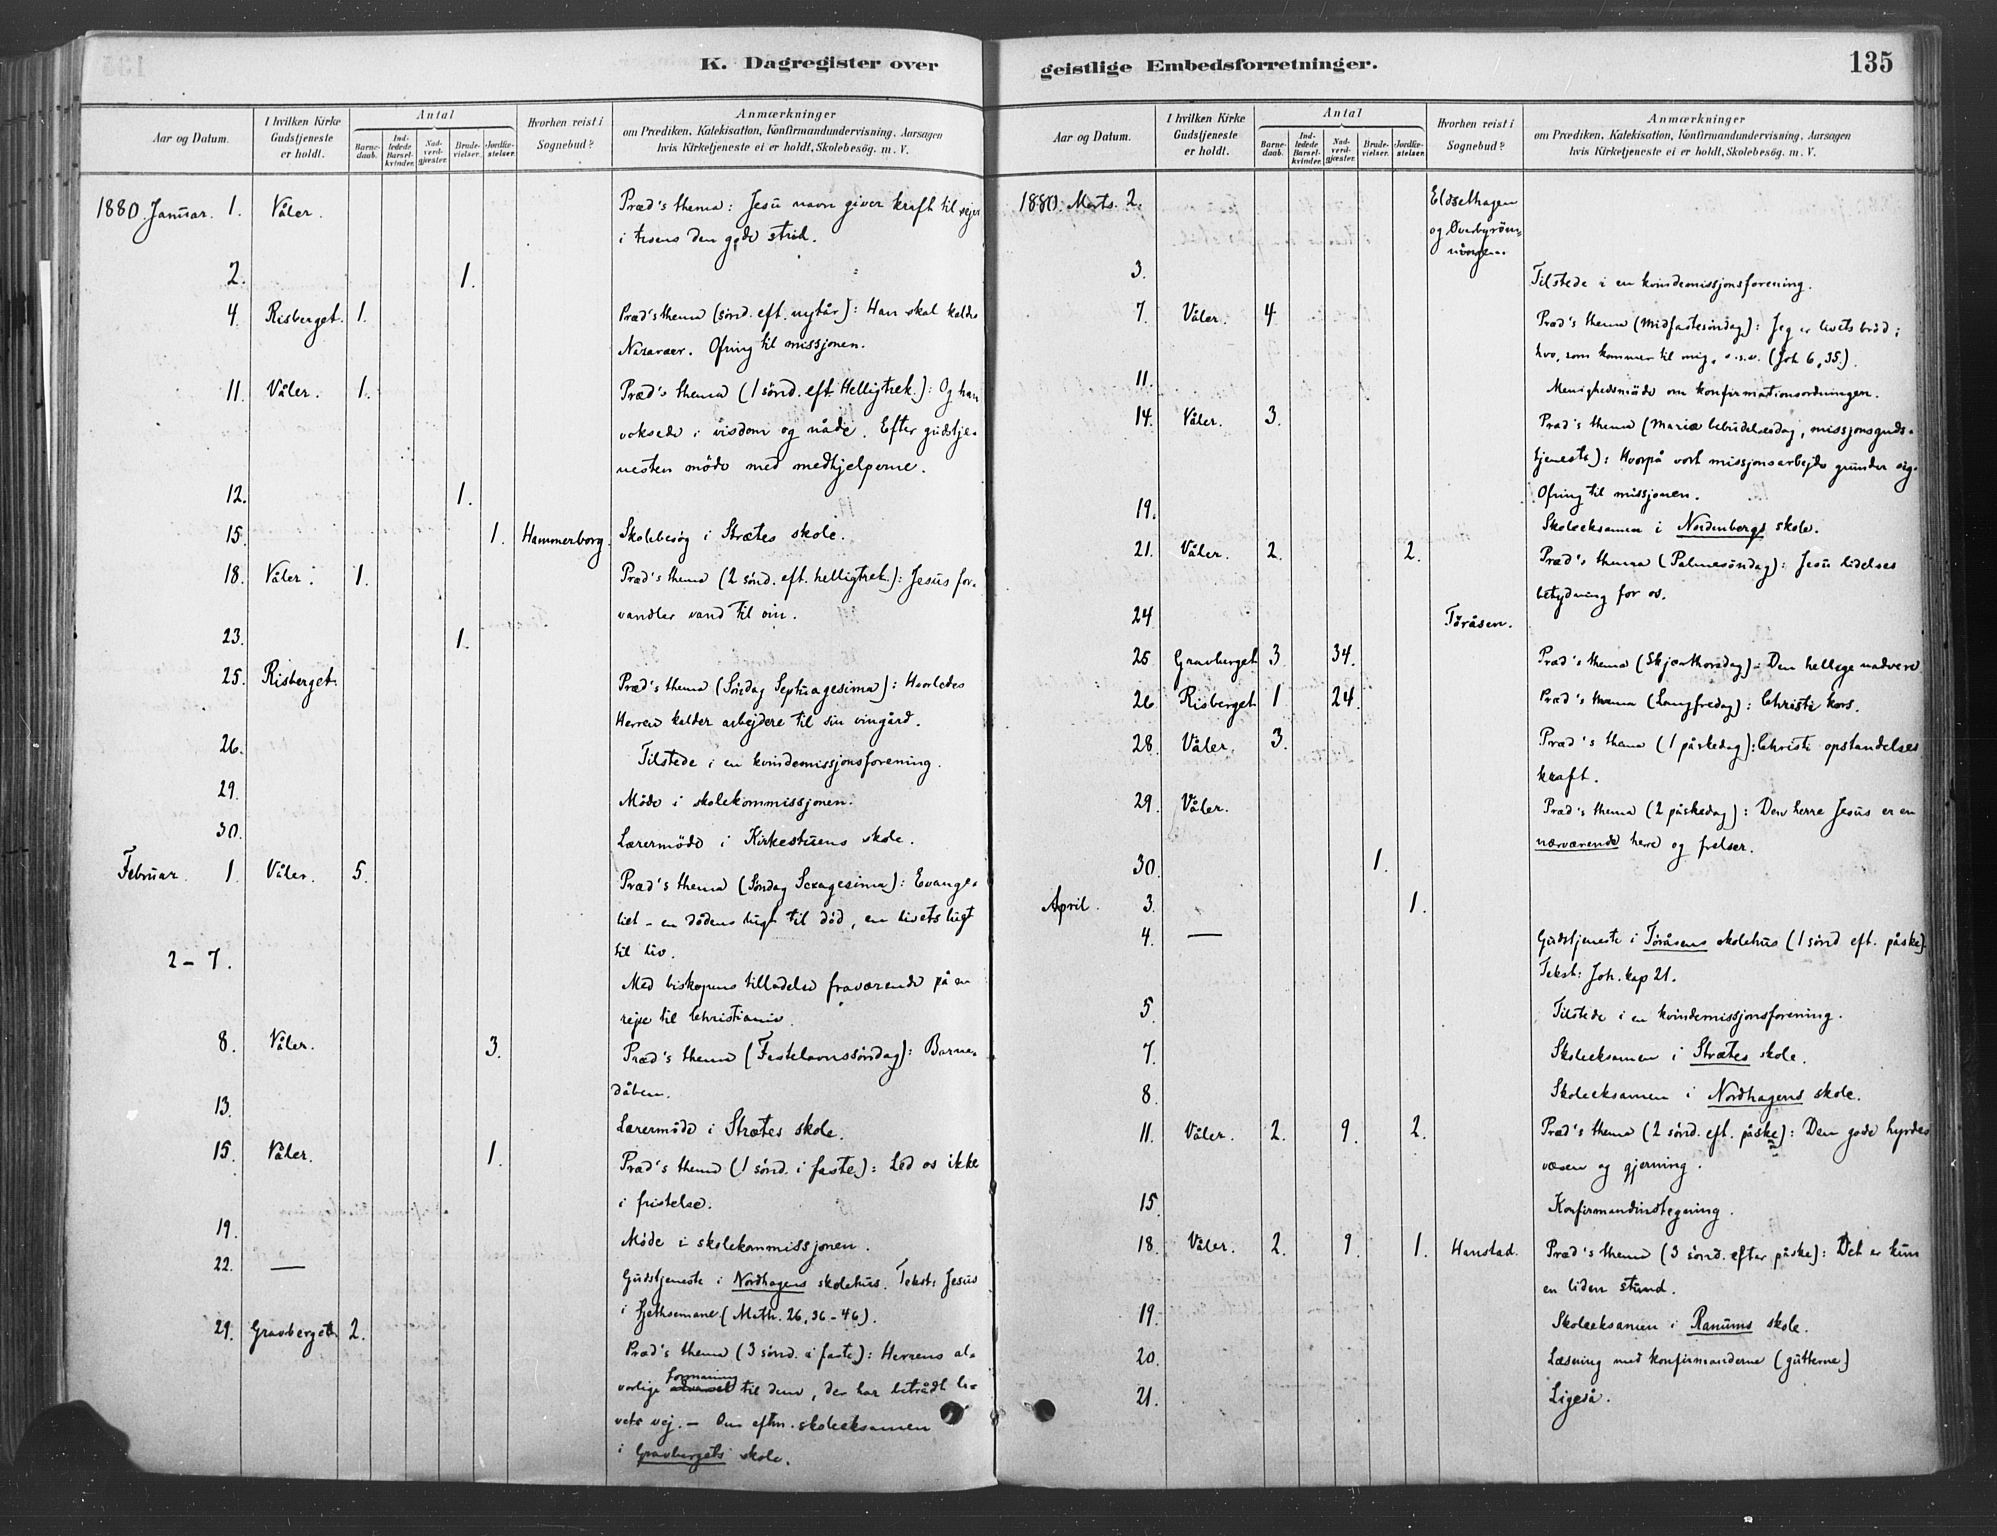 K. Dagregister over
Aar og Datum.
I hvilken Kirke Gudstjeneste er holdt.
Antal
Barnedaab.
Indledede Barselkvinder.
Nadverdgjester.
Brudevielser.
Jordfæstelser.
Hvorhen reist i Sognebud?
Anmærkninger
om Prædiken, Katekisation, Konfirmandundervisning, Aarsagen
hvis Kirketjeneste ei er holdt, Skolebesög. m. V.
1880. Januar. 1. Våler. Præd's thema: Jesu navn giver kraft til sejr
i troens den gode strid.
2. 1.
4. Risberget. 1. Præd's thema (sönd. eft. nytår): Han skal kaldes
Nazaræer. Ofring til missjonen.
11. Våler. 1. Præd's thema (1 sönd. eft. Helligtrek.): Og han
voksede i visdom og nåde. Efter gudstje-
nesten möde med medhjelperne.
12. 1.
15. 1. Hammerborg. Skolebesög i Strætes skole.
18. Våler. 1. Præd's thema (2 sönd. eft. helligtrek.): Jesus for-
vandler vand til vin.
23. 1.
25. Risberget. Præd's thema (Söndag Septuagesima): Hvorledes
Herren kalder arbejdere til sin vingård.
26. Tilstede i en kvindemissjonsforening.
29. Möde i skolekommissjonen.
30. Lærermöde i Kirkestuens skole.
Februar. 1. Våler. 5. Præd's thema (Söndag Sexagesima): Evange-
liet - en dödens lugt til död, en livets lugt
til liv.
2-7. Med biskopens tilladelse fraværende på en
rejse til Christiania.
8. Våler. 3. Præd's thema (Fastelavnssöndag): Barne-
dåben.
13. Lærermöde i Strætes skole.
15. Våler. 1. Præd's thema (1 sönd. i faste): Led os ikke
i fristelse.
19. Möde i skolekommissjonen.
22. — Gudstjeneste i Nordhagens skolehus. Tekst: Jesus
i Gethsemane (Math. 26, 36-46).
29. Gravberget 2. Præd's thema (3 sönd. i faste): Herrens al-
vorlige formaning til dem, der har betrådt li-
vets vej. - Om eftm. skoleeksamen
i Gravbergets skole.
geistlige Embedsforretninger.
135
Aar og Datum.
I hvilken Kirke Gudstjeneste er holdt.
Antal
Barnedaab.
Indledede Barselkvinder.
Nadverdgjester.
Brudevielser.
Jordfæstelser.
Hvorhen reist i Sognebud?
Anmærkninger
om Prædiken, Katekisation, Konfirmandundervisning, Aarsagen
hvis Kirketjeneste ei er holdt, Skolebesög. m. V.
1880. Marts. 2. Eldsethagen
og
3. Tilstede i en kvindemissjonsforening.
7. Våler. 4. Præd's thema (Midfastesöndag): Jeg er livets bröd;
hvo, som kommer til mig, o.s.v. (Joh 6, 35).
11. Menighedsmöde om konfirmationsordningen.
14. Våler. 3. Præd's thema (Mariæ bebudelsesdag, missjonsguds-
tjeneste): Hvorpå vort missjonsarbejde grunder sig.
Ofring til missjonen.
19. Skoleeksamen i Nordenbergs skole.
21. Våler. 2. 2. Præd's thema (Palmesöndag): Jesu lidelses
betydning for os.
24 Töråsen.
25 Gravberget 3 34. Præd's thema (Skjærthorsdag): Den hellige nadvere
26. Risberget 1 24. Præd's thema (Langfredag): Christi kors.
28. Våler. 3. Præd's thema (1 påskedag): Christi opstandelses
kraft.
29. Våler. Præd's thema (2 påskedag): Den herre Jesus er en
nærværende herre og frelser.
30. 1.
April. 3. — 1.
4. — Gudstjeneste i Töråsens skolehus (1 sönd eft. påske).
Tekst: Joh. kap 21.
5. Tilstede i en kvindemissjonsforening.
7. Skoleeksamen i Strætes skole.
8. Skoleeksamen i Nordhagens skole.
11. Våler. 2. 9. 2. Præd's thema (2 sönd. eft. påske): Den gode hyrdes
væsen og gjerning.
15. Konfirmandinstegning.
18. Våler. 2. 9. 1. Hanstad. Præd's thema (3 sönd. efter påske): Det er kun
en liden stund.
19. Skoleeksamen i Ranums skole.
20. Læsning med konfirmanderne (gutterne)
21. Ligeså.